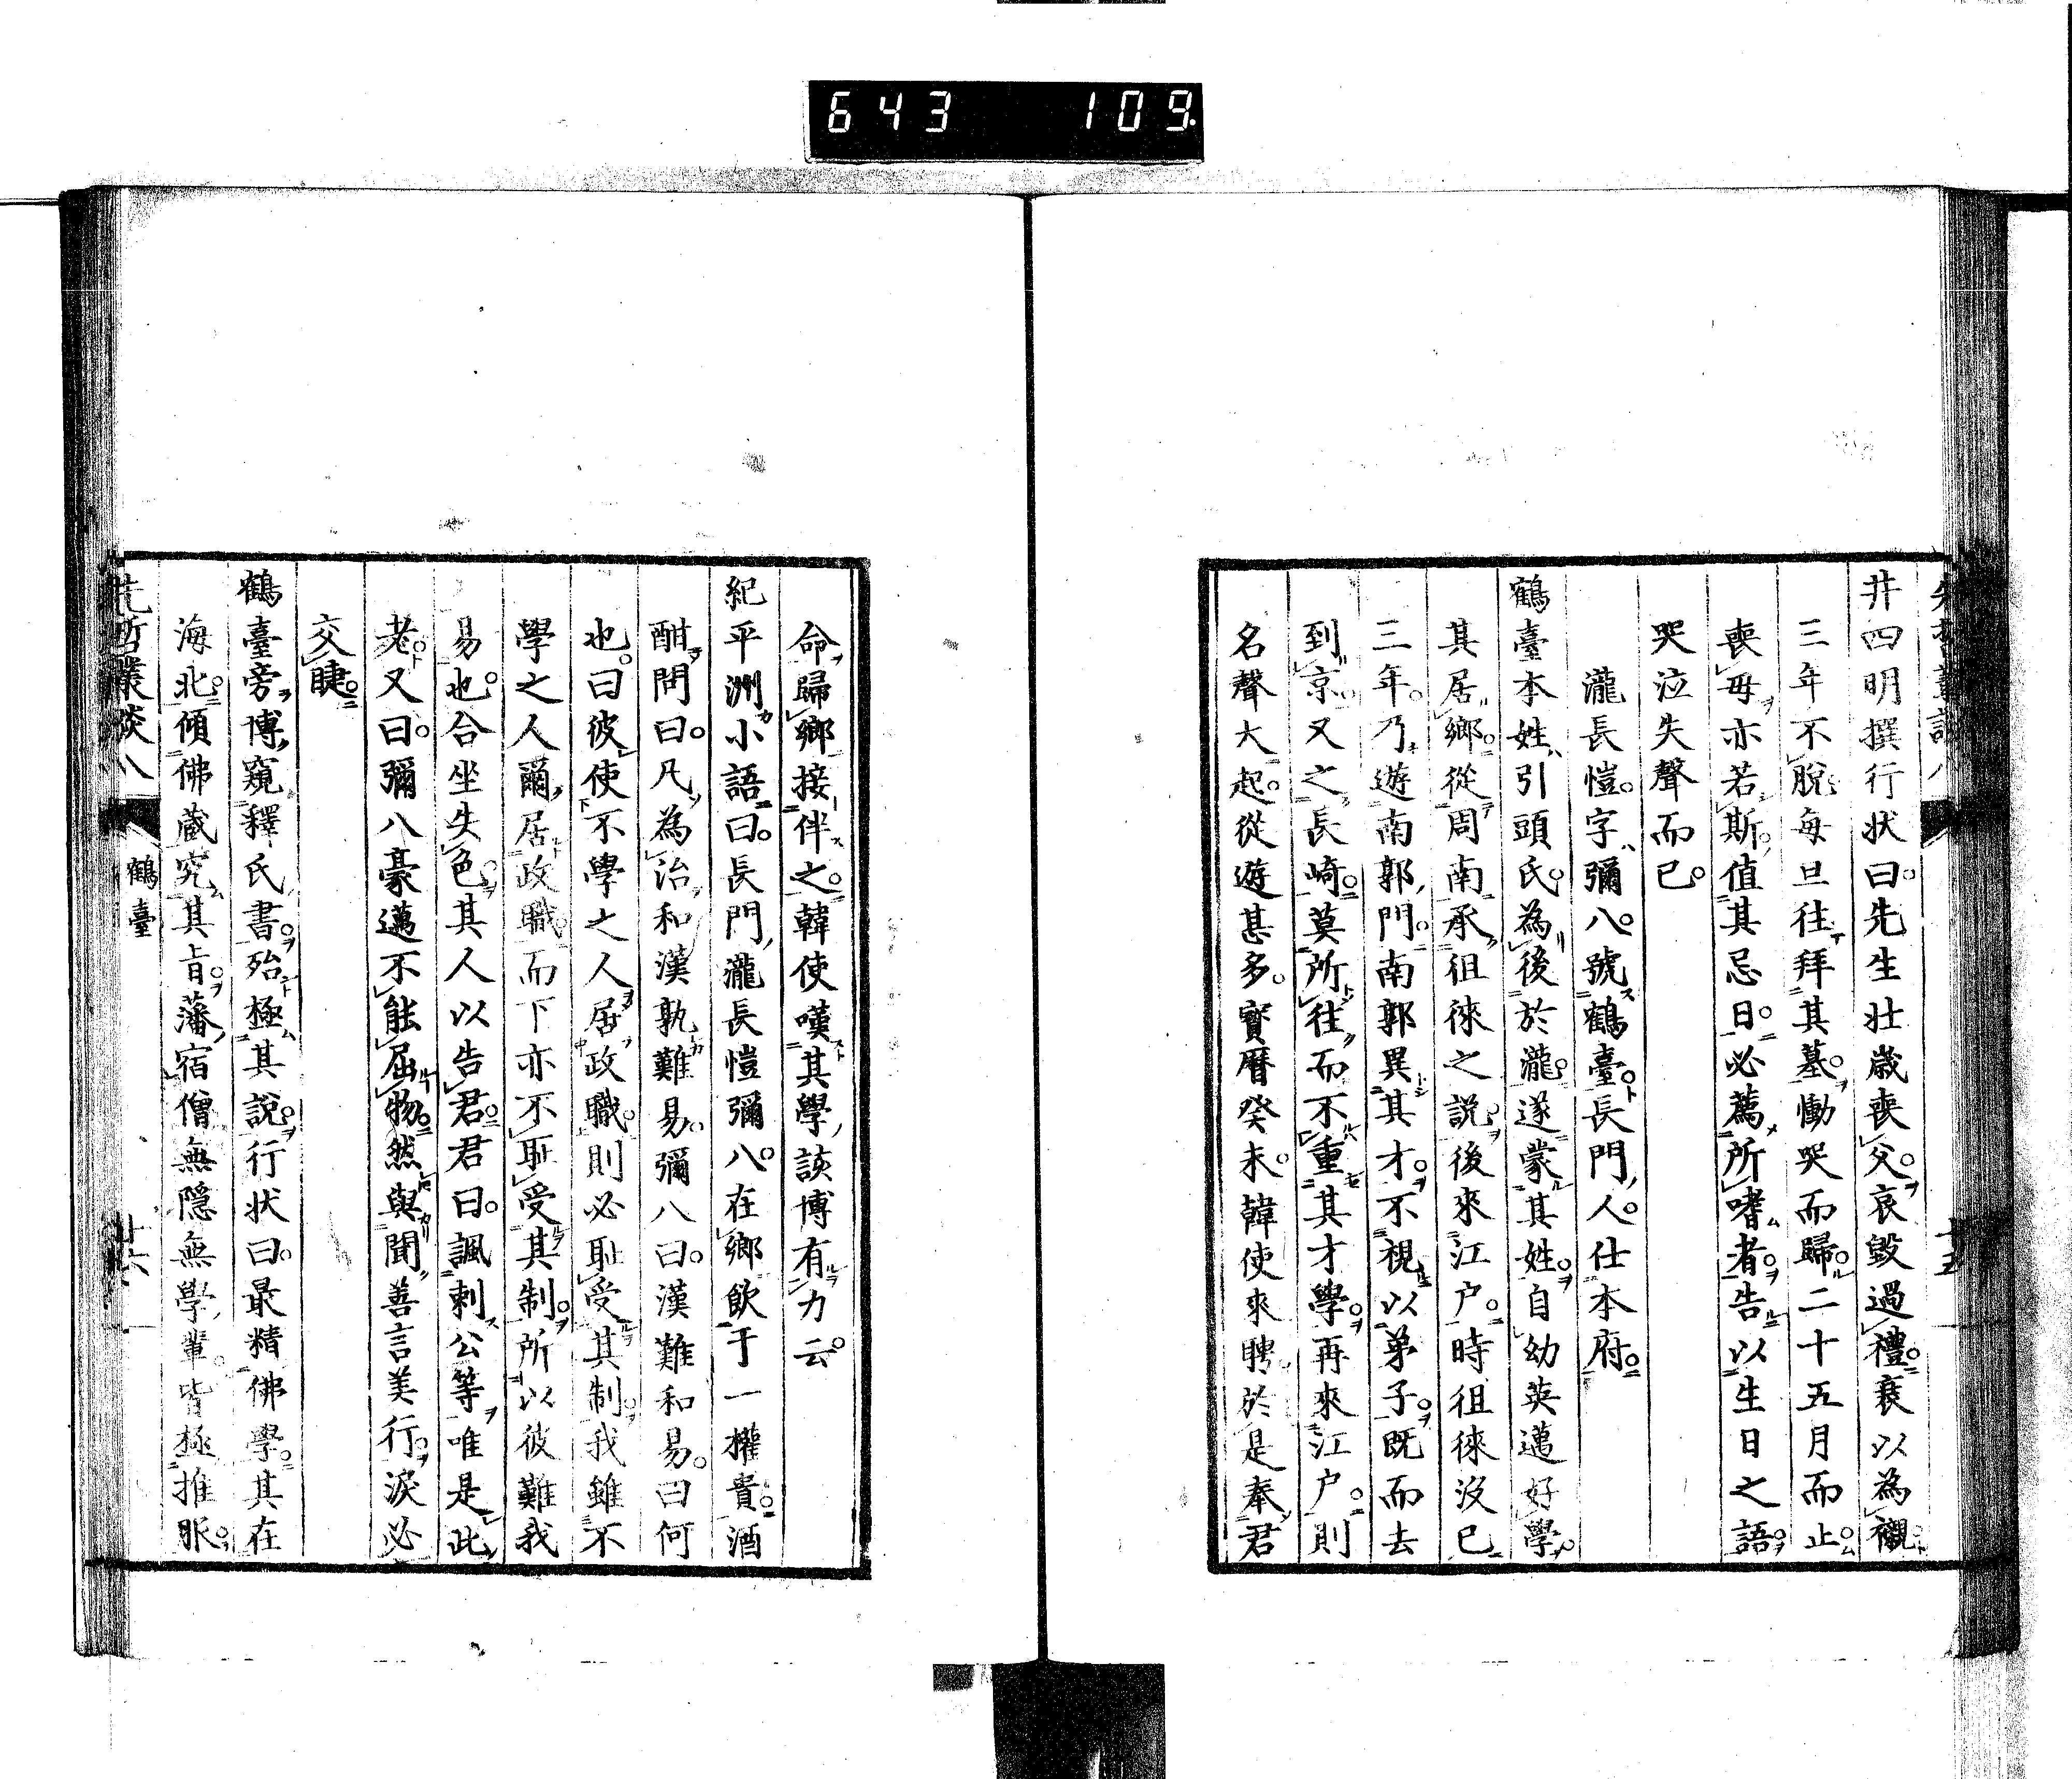 643 109.
井四明撰行状曰先生壮歳喪父哀毀過禮衰以為襯
三年不脫每旦往拜其墓慟哭而歸二十五月而止
喪母亦若斯值其忌日必薦所嗜者告以生日之語
哭泣失聲而已
瀧長愷字彌八號鶴臺長門人仕本府
鶴臺本姓引頭氏為後於瀧遂蒙其姓自幼英邁好學
其居鄉從周南承徂徠之説後來江户時徂徠沒已
三年乃遊南郭門南郭異其才不視以弟子既而去
到京又之長崎莫所往而不重其才學再來江户則
名聲大起從遊甚多寶曆癸未韓使來聘於是奉君
命歸鄉接伴之韓使嘆其學談博有力云
紀平洲小語曰長門瀧長愷彌八在鄉飲于一權貴酒
酣問曰凡為治和漢孰難易彌八曰漢難和易曰何
也曰彼使不學之人居政職則必恥受其制我雖不
學之人爾居政職而下亦不恥受其制所以彼難我
易也合坐失色其人以告君君曰諷刺公等唯是此
老又曰彌八豪邁不能屈物然與聞善言美行淚必
交睫
鶴臺旁博窺釋氏書殆極其說行状曰最精佛學其在
海北傾佛蔵究其旨藩宿僧無隠無學輩皆極推服
先哲叢談八
鶴臺
廿六